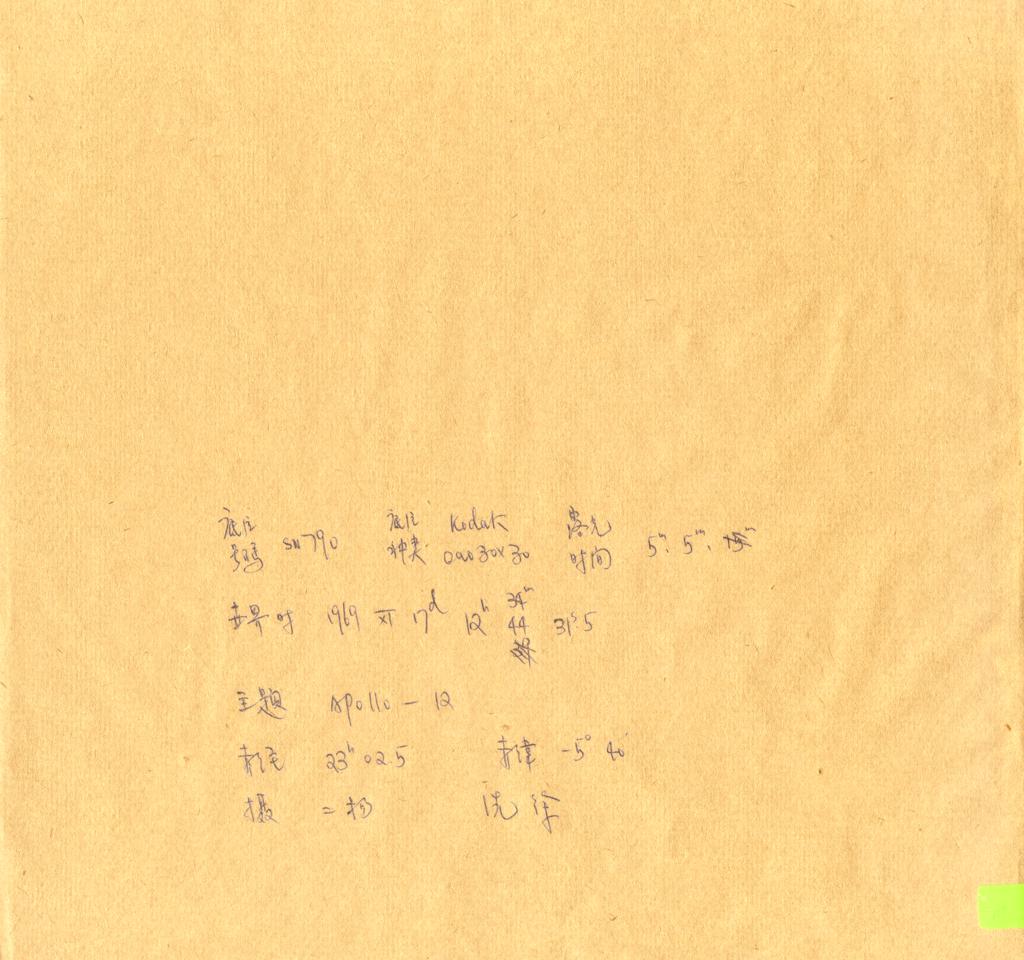 底片号码 SN790 底片种类 Kodak 0a0 30x30 露光时间 5ᵐ, 5ᵐ,
世界时 1969 XI 17ᵈ 12ʰ 34ᵐ 44 31ˢ.5
主题 Apollo - 12
赤经 23ʰ 02.5 赤纬 -5° 40'
摄 二杨 洗 徐